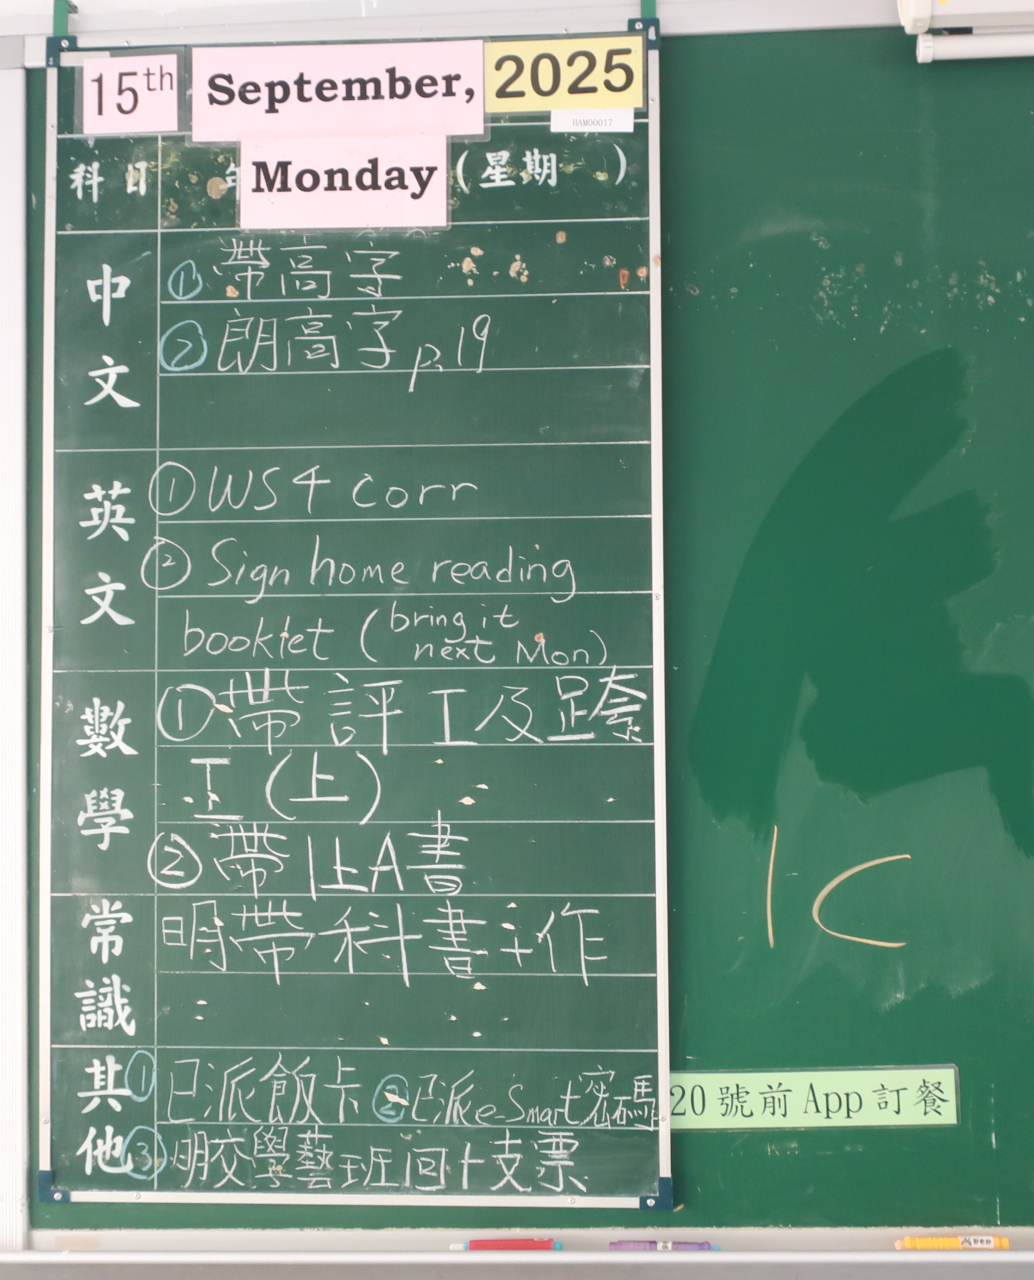 15th September, 2025
HAM00017
Monday (星期一)
科目
中文
① 帶高字
② 朗高字 p.19
英文
① WS4 corr
② Sign home reading
booklet (bring it next Mon)
數學
① 帶評工及跨
工(上)
② 帶1上A書
常識
明帶科書+作
其他
① 已派飯卡 ② 已派e-Smart密碼
③ 明交學藝班回+支票
1C
20號前App訂餐